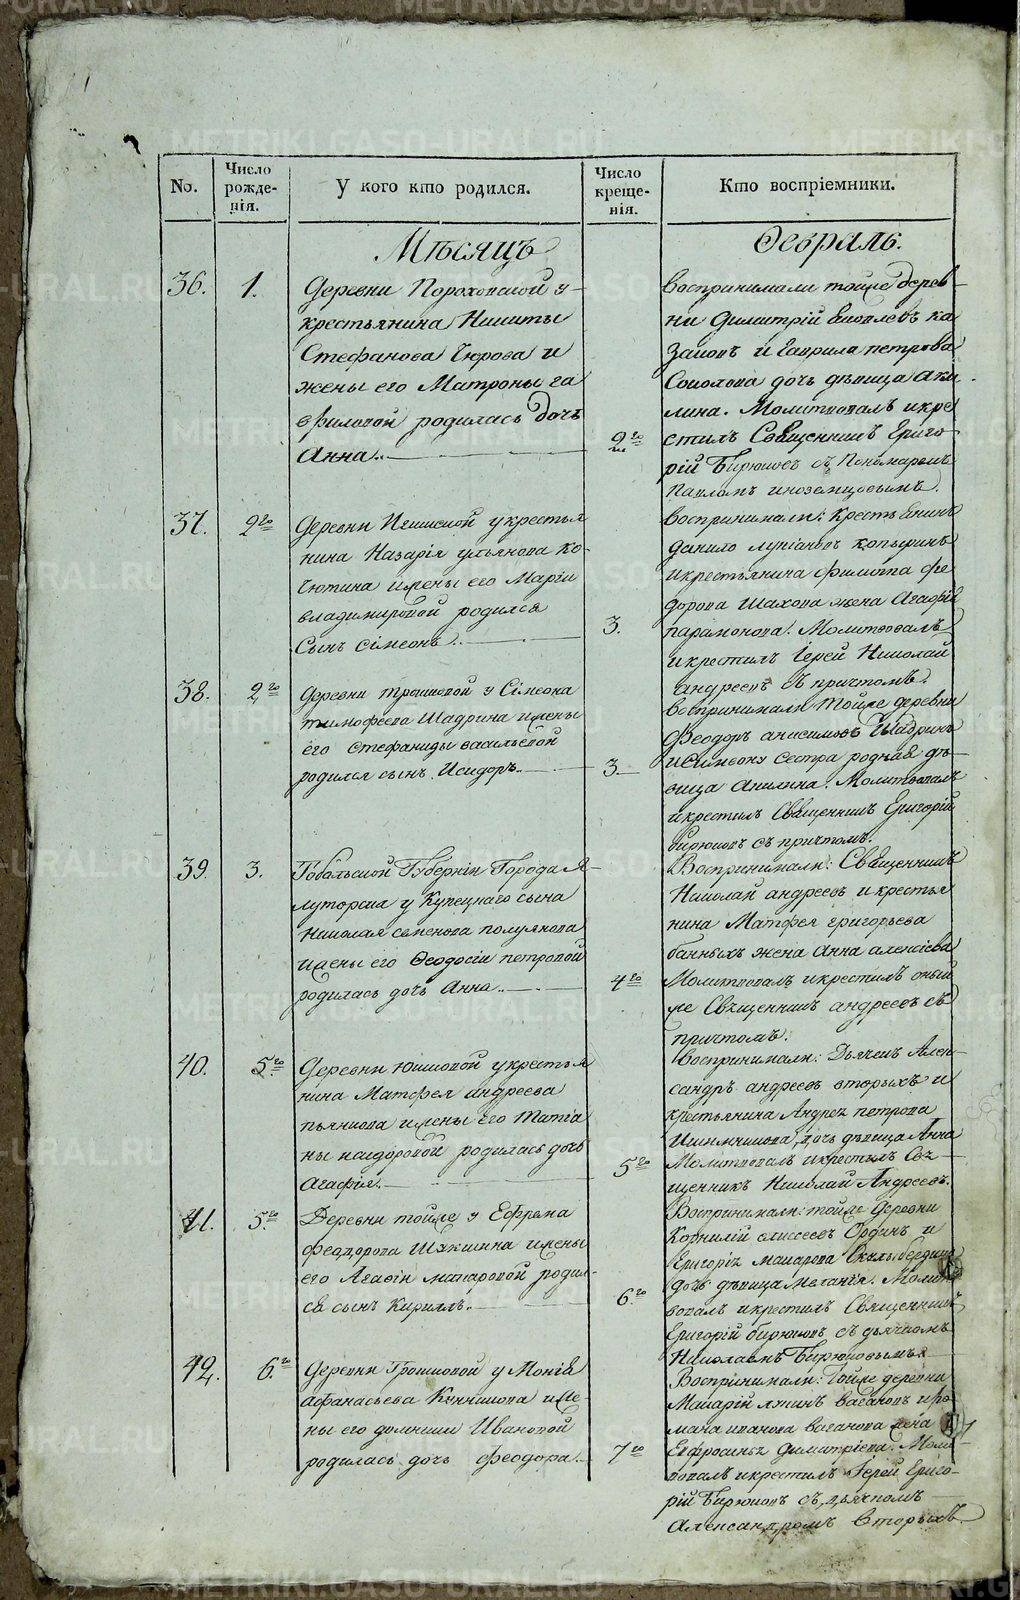 No.
Число рожде-нія.
У кого кто родился.
Число креще-нія.
Кто воспріемники.
Мѣсяцъ
Февраль.
36.
1.
Деревни Пороховской у
крестьянина Никиты
Стефанова Чюрова и
жены его Матроны га
вриловой родилась дочь
Анна..
2го
воспринимали тойже дерев
ни Димитрій Яковлевъ ка
заковъ и Гаврила петрова
Соколова дочь дѣвица аки
лина. Молитвовалъ икре
стилъ Священникъ Григо
рій Бирюковъ съ Пономаремъ
Павломъ иноземцовымъ.
37.
2го
Деревни укрестья
нина Назарія ульянова ко
чютина ижены его Маріи
владимировой родился
Сынъ сімеонъ..
3.
воспринимали: крестьянинъ
данило лукіановъ копыринъ
икрестьянина филиппа фе
дорова Шахова жена Агафія
парамонова. Молитвовалъ
икрестилъ Іерей Николай
андреевъ съ причтомъ.
38.
2го
деревни трошковой у Сімеона
тимофеева Шадрина ижены
его Стефаниды васильевой
родился сынъ Исидоръ..
3.
воспринимали тойже деревни
Феодоръ анисимовъ Шадринъ
иСимеону сестра родная дѣ
вица Акилина. Молитвовалъ
икрестилъ Священникъ Григорій
бирюковъ съ причтомъ.
39.
3.
Тобольской Губерніи Города Я
луторска у Купецкаго сына
Николая семенова полуянова
ижены его Феодосіи петровой
родилась дочь Анна..
4го
Воспринимали: Священникъ
Николай андреевъ и крестья
нина Матфея григорьева
банныхъ жена Анна алексіева
Молитвовалъ икрестилъ оный
же Священникъ андреевъ съ
причтомъ.
40.
5го
Деревни Юшковой укрестья
нина Матфея андреева
пьянкова ижены его Татіа
ны никифоровой родилась дочь
Агафія.
5го
Воспринимали: Дьячекъ Алек
сандръ андреевъ вторыхъ и
крестьянина Андрея петрова
Ишимчикова, дочь дѣвица Анна
Молитвовалъ икрестилъ Свя
щенникъ Николай Андреевъ.
41.
5го
Деревни тойже у Ефрема
феодорова Шякшина ижены
его Агафіи макаровой родил
ся сынъ Кириллъ.
6го
Воспринимали: тойже деревни
Корнилій елисеевъ Ординъ и
Григорія макарова
дочь дѣвица Меланія. Молит
вовалъ икрестилъ Священникъ
Григорій бирюковъ съ дьячкомъ
Николаемъ Бирюковымъ.
42.
6го
деревни Трошковой у Мокія
афанасьева Кунникова и же
ны его домники Ивановой
родилась дочь феодора.
7го
Воспринимали: Тойже деревни
Макарій лукинъ вагановъ и ро
мана иванова ваганова жена
Евфросинья Димитріева. Моли
вовалъ икрестилъ Іерей Григо
рій Бирюковъ съ дьячкомъ
Александромъ вторыхъ
METRIKI.GASO-URAL.RU